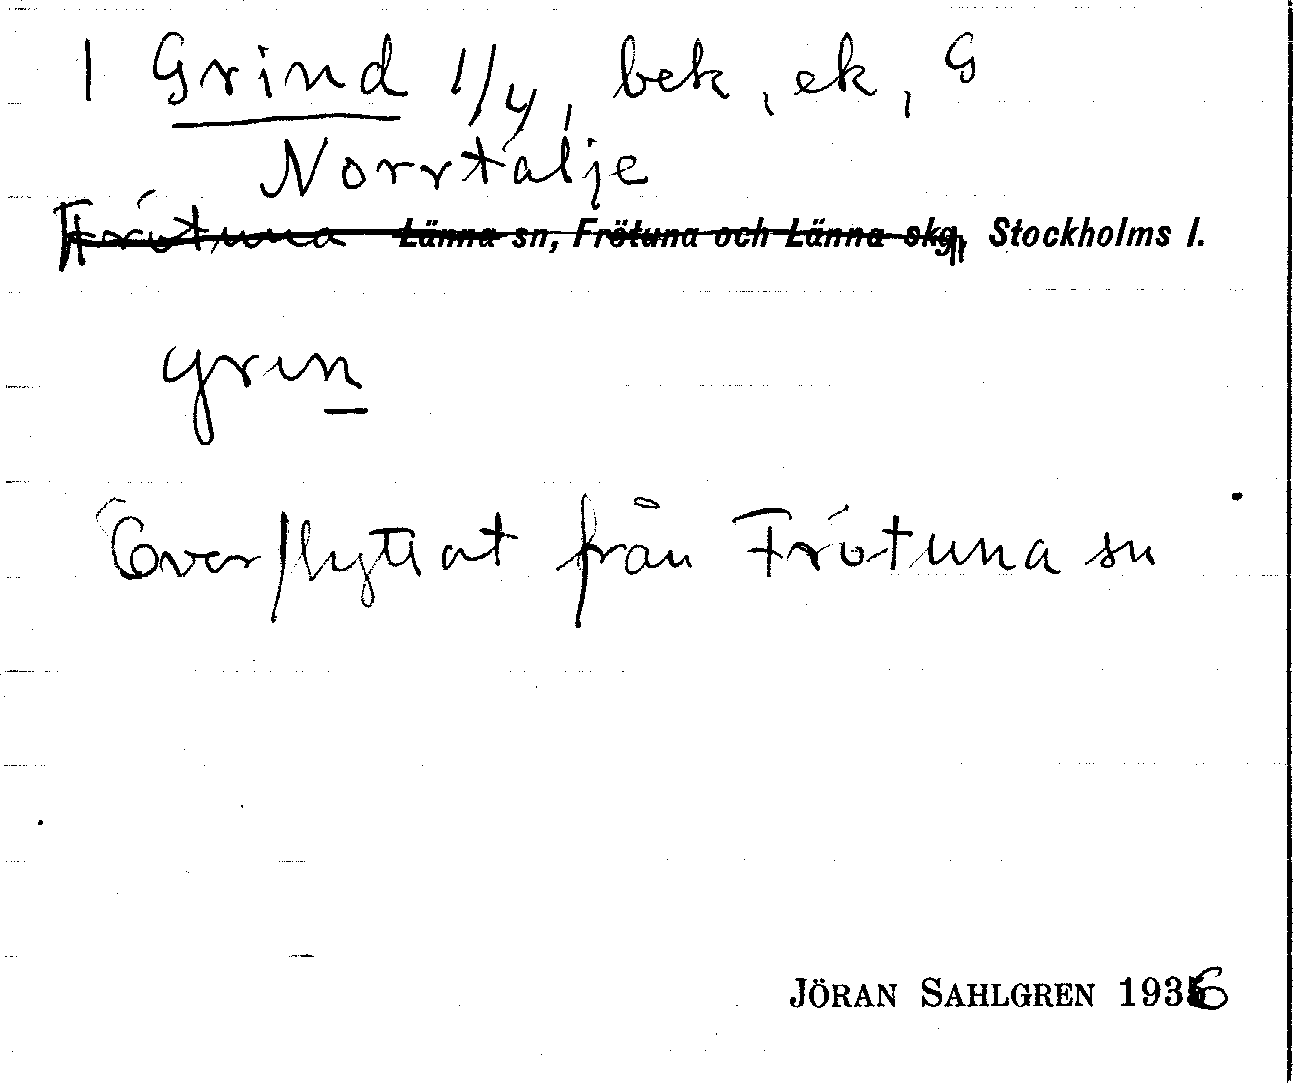 1 Grind 1/4, bek, ek, G
Norrtälje
Frötuna Länna sn, Frötuna och Länna skg, Stockholms l.
grin
Överflyttat från Frötuna sn
JÖRAN SAHLGREN 1936